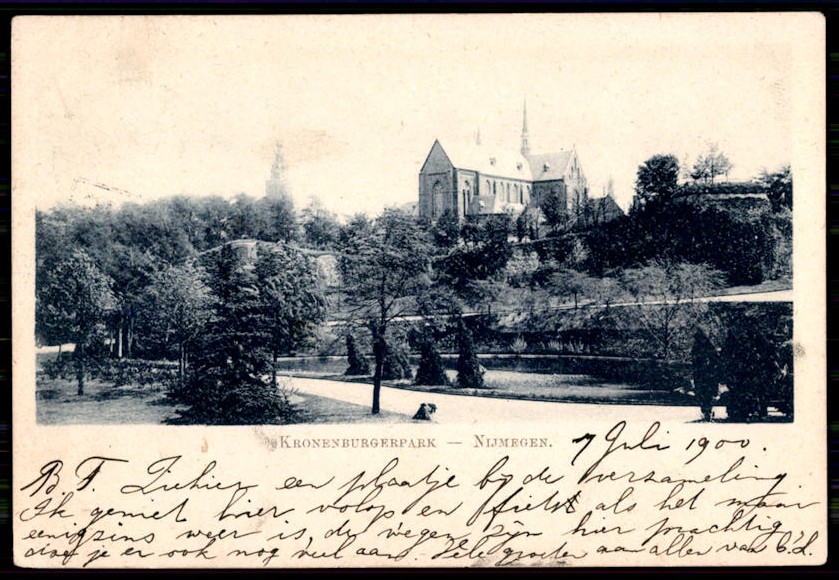 KRONENBURGERPARK — NIJMEGEN. 7 Juli 1900.
B. F. Ziehier een plaatje bij de verzameling.
Ik geniet hier volop en fiets als het maar
eenigszins weer is, de wegen zijn hier prachtig
doe je er ook nog veel aan. Vele groeten aan allen van